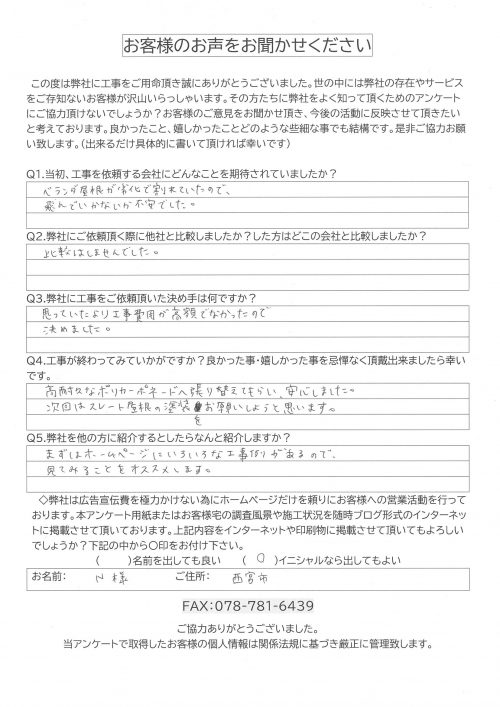 お客様のお声をお聞かせください
この度は弊社に工事をご用命頂き誠にありがとうございました。世の中には弊社の存在やサービス
をご存知ないお客様が沢山いらっしゃいます。その方たちに弊社をよく知って頂くためのアンケート
にご協力頂けないでしょうか？お客様のご意見をお聞かせ頂き、今後の活動に反映させて頂きたい
と考えております。良かったこと、嬉しかったことどのような些細な事でも結構です。是非ご協力お願
い致します。（出来るだけ具体的に書いて頂ければ幸いです）
Q1.当初、工事を依頼する会社にどんなことを期待されていましたか？
ベランダ屋根が劣化で割れていたので、
飛んでいかないか不安でした。
Q2.弊社にご依頼頂く際に他社と比較しましたか？した方はどこの会社と比較しましたか？
比較はしませんでした。
Q3.弊社に工事をご依頼頂いた決め手は何ですか？
思っていたより工事費用が高額でなかったので
決めました。
Q4.工事が終わってみていかがですか？良かった事・嬉しかった事を忌憚なく頂戴出来ましたら幸い
です。
高耐久なポリカーボネードへ張り替えてもらい、安心しました。
次回はスレート屋根の塗装をお願いしようと思います。
Q5.弊社を他の方に紹介するとしたらなんと紹介しますか？
まずはホームページにいろいろな工事例があるので、
見てみることをオススメします。
◇弊社は広告宣伝費を極力かけない為にホームページだけを頼りにお客様への営業活動を行って
おります。本アンケート用紙またはお客様宅の調査風景や施工状況を随時ブログ形式のインターネッ
トに掲載させて頂いております。上記内容をインターネットや印刷物に掲載させて頂いてもよろしい
でしょうか？下記の中から〇印をお付け下さい。
（　　）名前を出しても良い　（ O ）イニシャルなら出してもよい
お名前：　N 様　ご住所：　西宮市
FAX：078-781-6439
ご協力ありがとうございました。
当アンケートで取得したお客様の個人情報は関係法規に基づき厳正に管理致します。